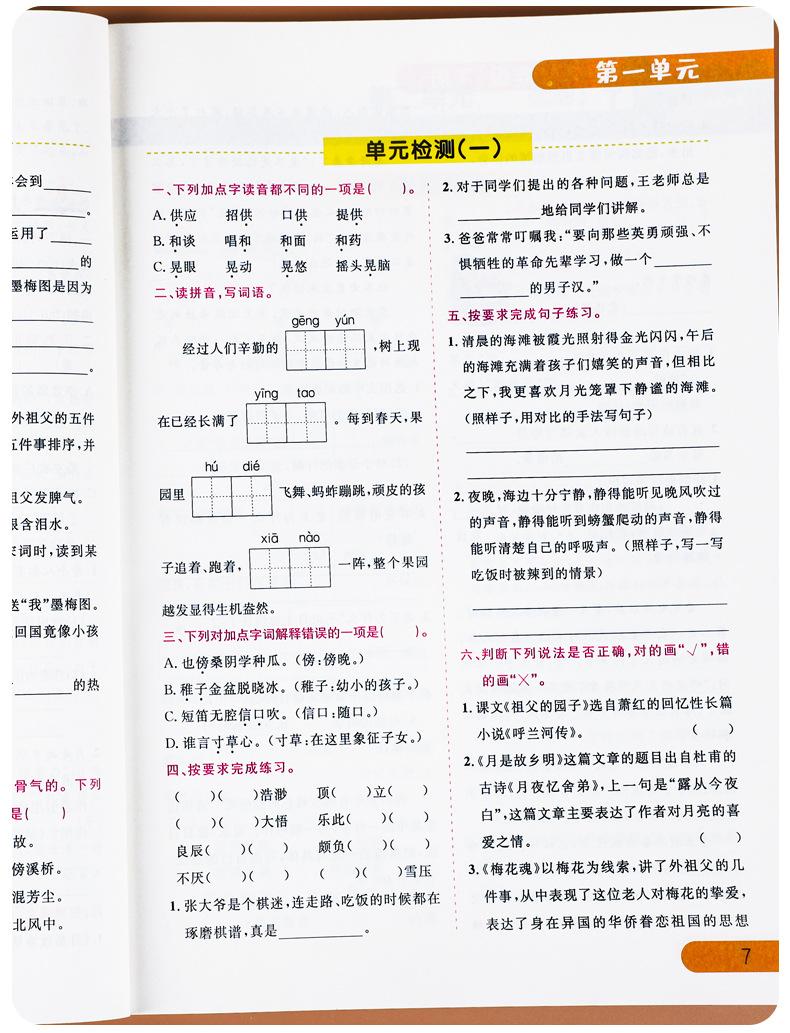 第一单元
单元检测(一)
会到________
________。
运用了______
________的
墨梅图是因为
________。
外祖父的五件
五件事排序,并
祖父发脾气。
眼含泪水。
词时,读到某
送“我”墨梅图。
回国竟像小孩
________的热
骨气的。下列
是(  )
故。
傍溪桥。
混芳尘。
北风中。
一、下列加点字读音都不同的一项是(  )。
A. 供应 招供 口供 提供
B. 和谈 唱和 和面 和药
C. 晃眼 晃动 晃悠 摇头晃脑
二、读拼音,写词语。
gēng yún
经过人们辛勤的 ,树上现
yīng tao
在已经长满了 。每到春天,果
hú dié
园里 飞舞、蚂蚱蹦跳,顽皮的孩
xiā nào
子追着、跑着, 一阵,整个果园
越发显得生机盎然。
三、下列对加点字词解释错误的一项是(  )。
A. 也傍桑阴学种瓜。(傍:傍晚。)
B. 稚子金盆脱晓冰。(稚子:幼小的孩子。)
C. 短笛无腔信口吹。(信口:随口。)
D. 谁言寸草心。(寸草:在这里象征子女。)
四、按要求完成练习。
(  )(  )浩渺 顶(  )立(  )
(  )(  )大悟 乐此(  )(  )
良辰(  )(  ) 颇负(  )(  )
不厌(  )(  ) (  )(  )雪压
1. 张大爷是个棋迷,连走路、吃饭的时候都在
琢磨棋谱,真是____________。
2. 对于同学们提出的各种问题,王老师总是
____________地给同学们讲解。
3. 爸爸常常叮嘱我:“要向那些英勇顽强、不
惧牺牲的革命先辈学习,做一个________
__________的男子汉。”
五、按要求完成句子练习。
1. 清晨的海滩被霞光照射得金光闪闪,午后
的海滩充满着孩子们嬉笑的声音,但相比
之下,我更喜欢月光笼罩下静谧的海滩。
(照样子,用对比的手法写句子)
2. 夜晚,海边十分宁静,静得能听见晚风吹过
的声音,静得能听到螃蟹爬动的声音,静得
能听清楚自己的呼吸声。(照样子,写一写
吃饭时被辣到的情景)
六、判断下列说法是否正确,对的画“√”,错
的画“×”。
1. 课文《祖父的园子》选自萧红的回忆性长篇
小说《呼兰河传》。 (  )
2. 《月是故乡明》这篇文章的题目出自杜甫的
古诗《月夜忆舍弟》,上一句是“露从今夜
白”,这篇文章主要表达了作者对月亮的喜
爱之情。 (  )
3. 《梅花魂》以梅花为线索,讲了外祖父的几
件事,从中表现了这位老人对梅花的挚爱,
表达了身在异国的华侨眷恋祖国的思想
7